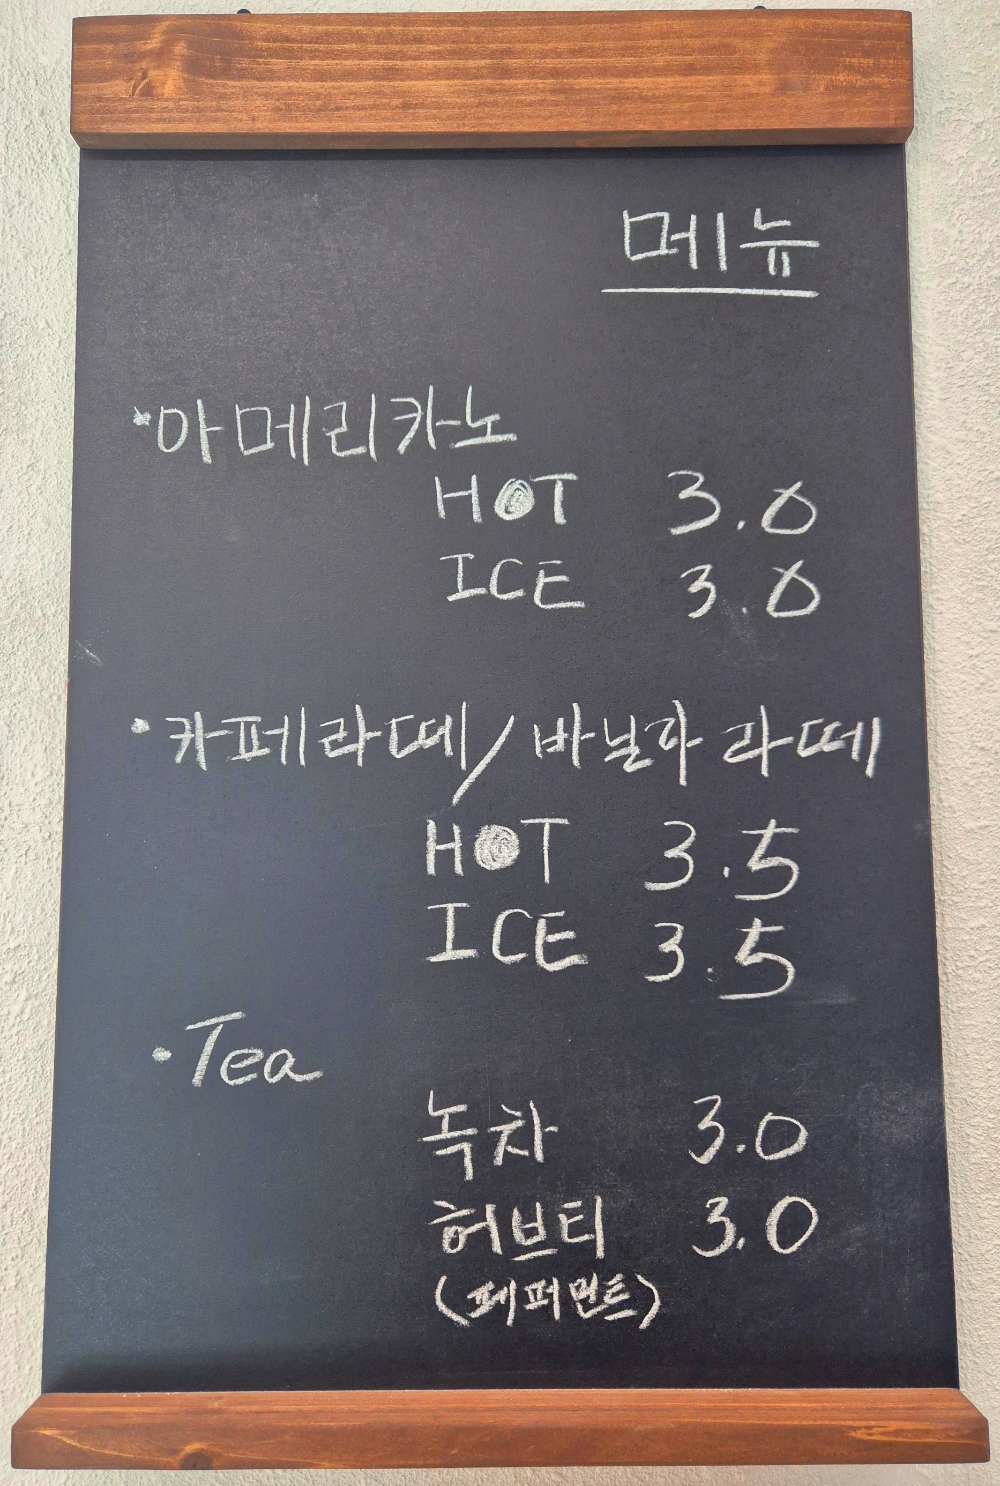 메뉴
·아메리카노
HOT 3.0
ICE 3.0
·카페라떼/바닐라 라떼
HOT 3.5
ICE 3.5
·Tea
녹차 3.0
허브티 3.0
(페퍼먼트)